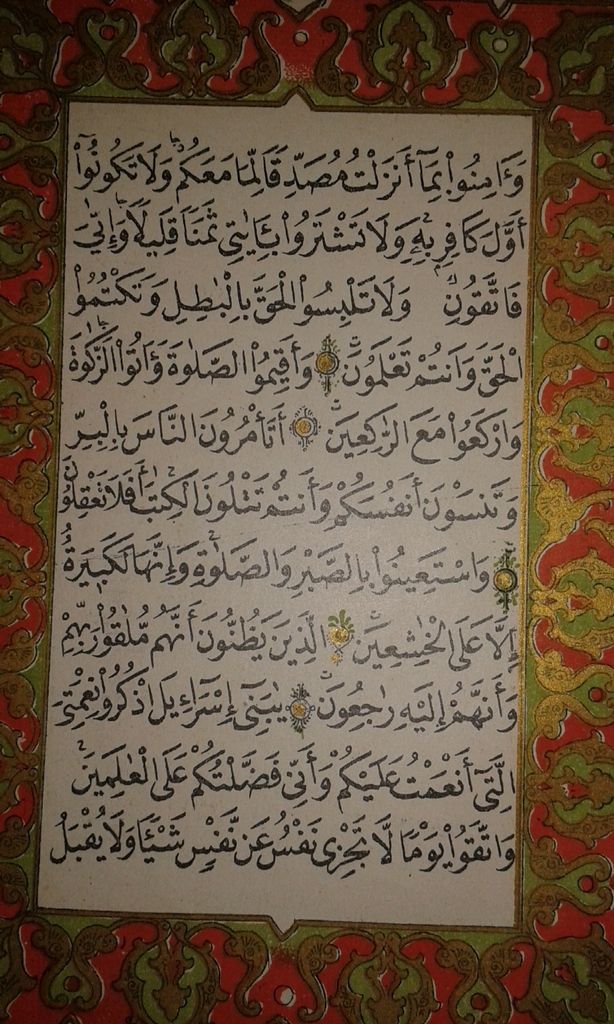 وَءَامِنُوا۟ بِمَآ أَنزَلْتُ مُصَدِّقًا لِّمَا مَعَكُمْ وَلَا تَكُونُوٓا۟
أَوَّلَ كَافِرٍۭ بِهِۦ وَلَا تَشْتَرُوا۟ بِـَٔايَـٰتِى ثَمَنًا قَلِيلًا وَإِيَّـٰىَ
فَاتَّقُونِ وَلَا تَلْبِسُوا۟ الْحَقَّ بِالْبَـٰطِلِ وَتَكْتُمُوا۟
الْحَقَّ وَأَنتُمْ تَعْلَمُونَ وَأَقِيمُوا۟ الصَّلَوٰةَ وَءَاتُوا۟ الزَّكَوٰةَ
وَارْكَعُوا۟ مَعَ الرَّٰكِعِينَ أَتَأْمُرُونَ النَّاسَ بِالْبِرِّ
وَتَنسَوْنَ أَنفُسَكُمْ وَأَنتُمْ تَتْلُونَ الْكِتَـٰبَ أَفَلَا تَعْقِلُونَ
وَاسْتَعِينُوا۟ بِالصَّبْرِ وَالصَّلَوٰةِ وَإِنَّهَا لَكَبِيرَةٌ
إِلَّا عَلَى الْخَـٰشِعِينَ الَّذِينَ يَظُنُّونَ أَنَّهُم مُّلَـٰقُوا۟ رَبِّهِمْ
وَأَنَّهُمْ إِلَيْهِ رَٰجِعُونَ يَـٰبَنِىٓ إِسْرَٰٓءِيلَ اذْكُرُوا۟ نِعْمَتِىَ
الَّتِىٓ أَنْعَمْتُ عَلَيْكُمْ وَأَنِّى فَضَّلْتُكُمْ عَلَى الْعَـٰلَمِينَ
وَاتَّقُوا۟ يَوْمًا لَّا تَجْزِى نَفْسٌ عَن نَّفْسٍ شَيْـًٔا وَلَا يُقْبَلُ